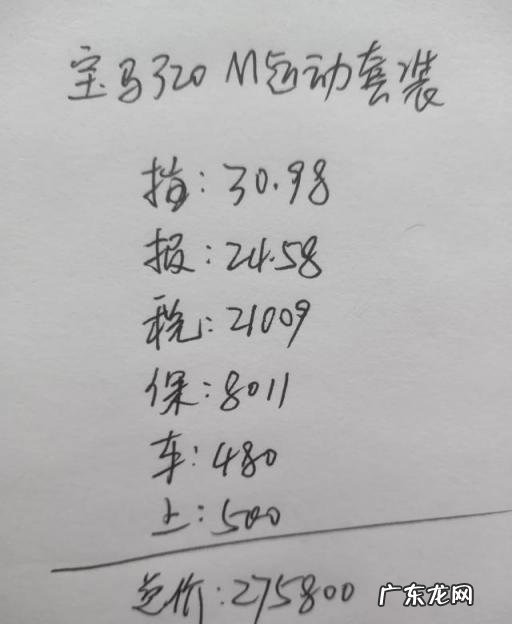 宝马320 M运动套装
指:30.98
报:24.58
税:21009
保:8011
车:480
上:500
总价:275800
广东龙网